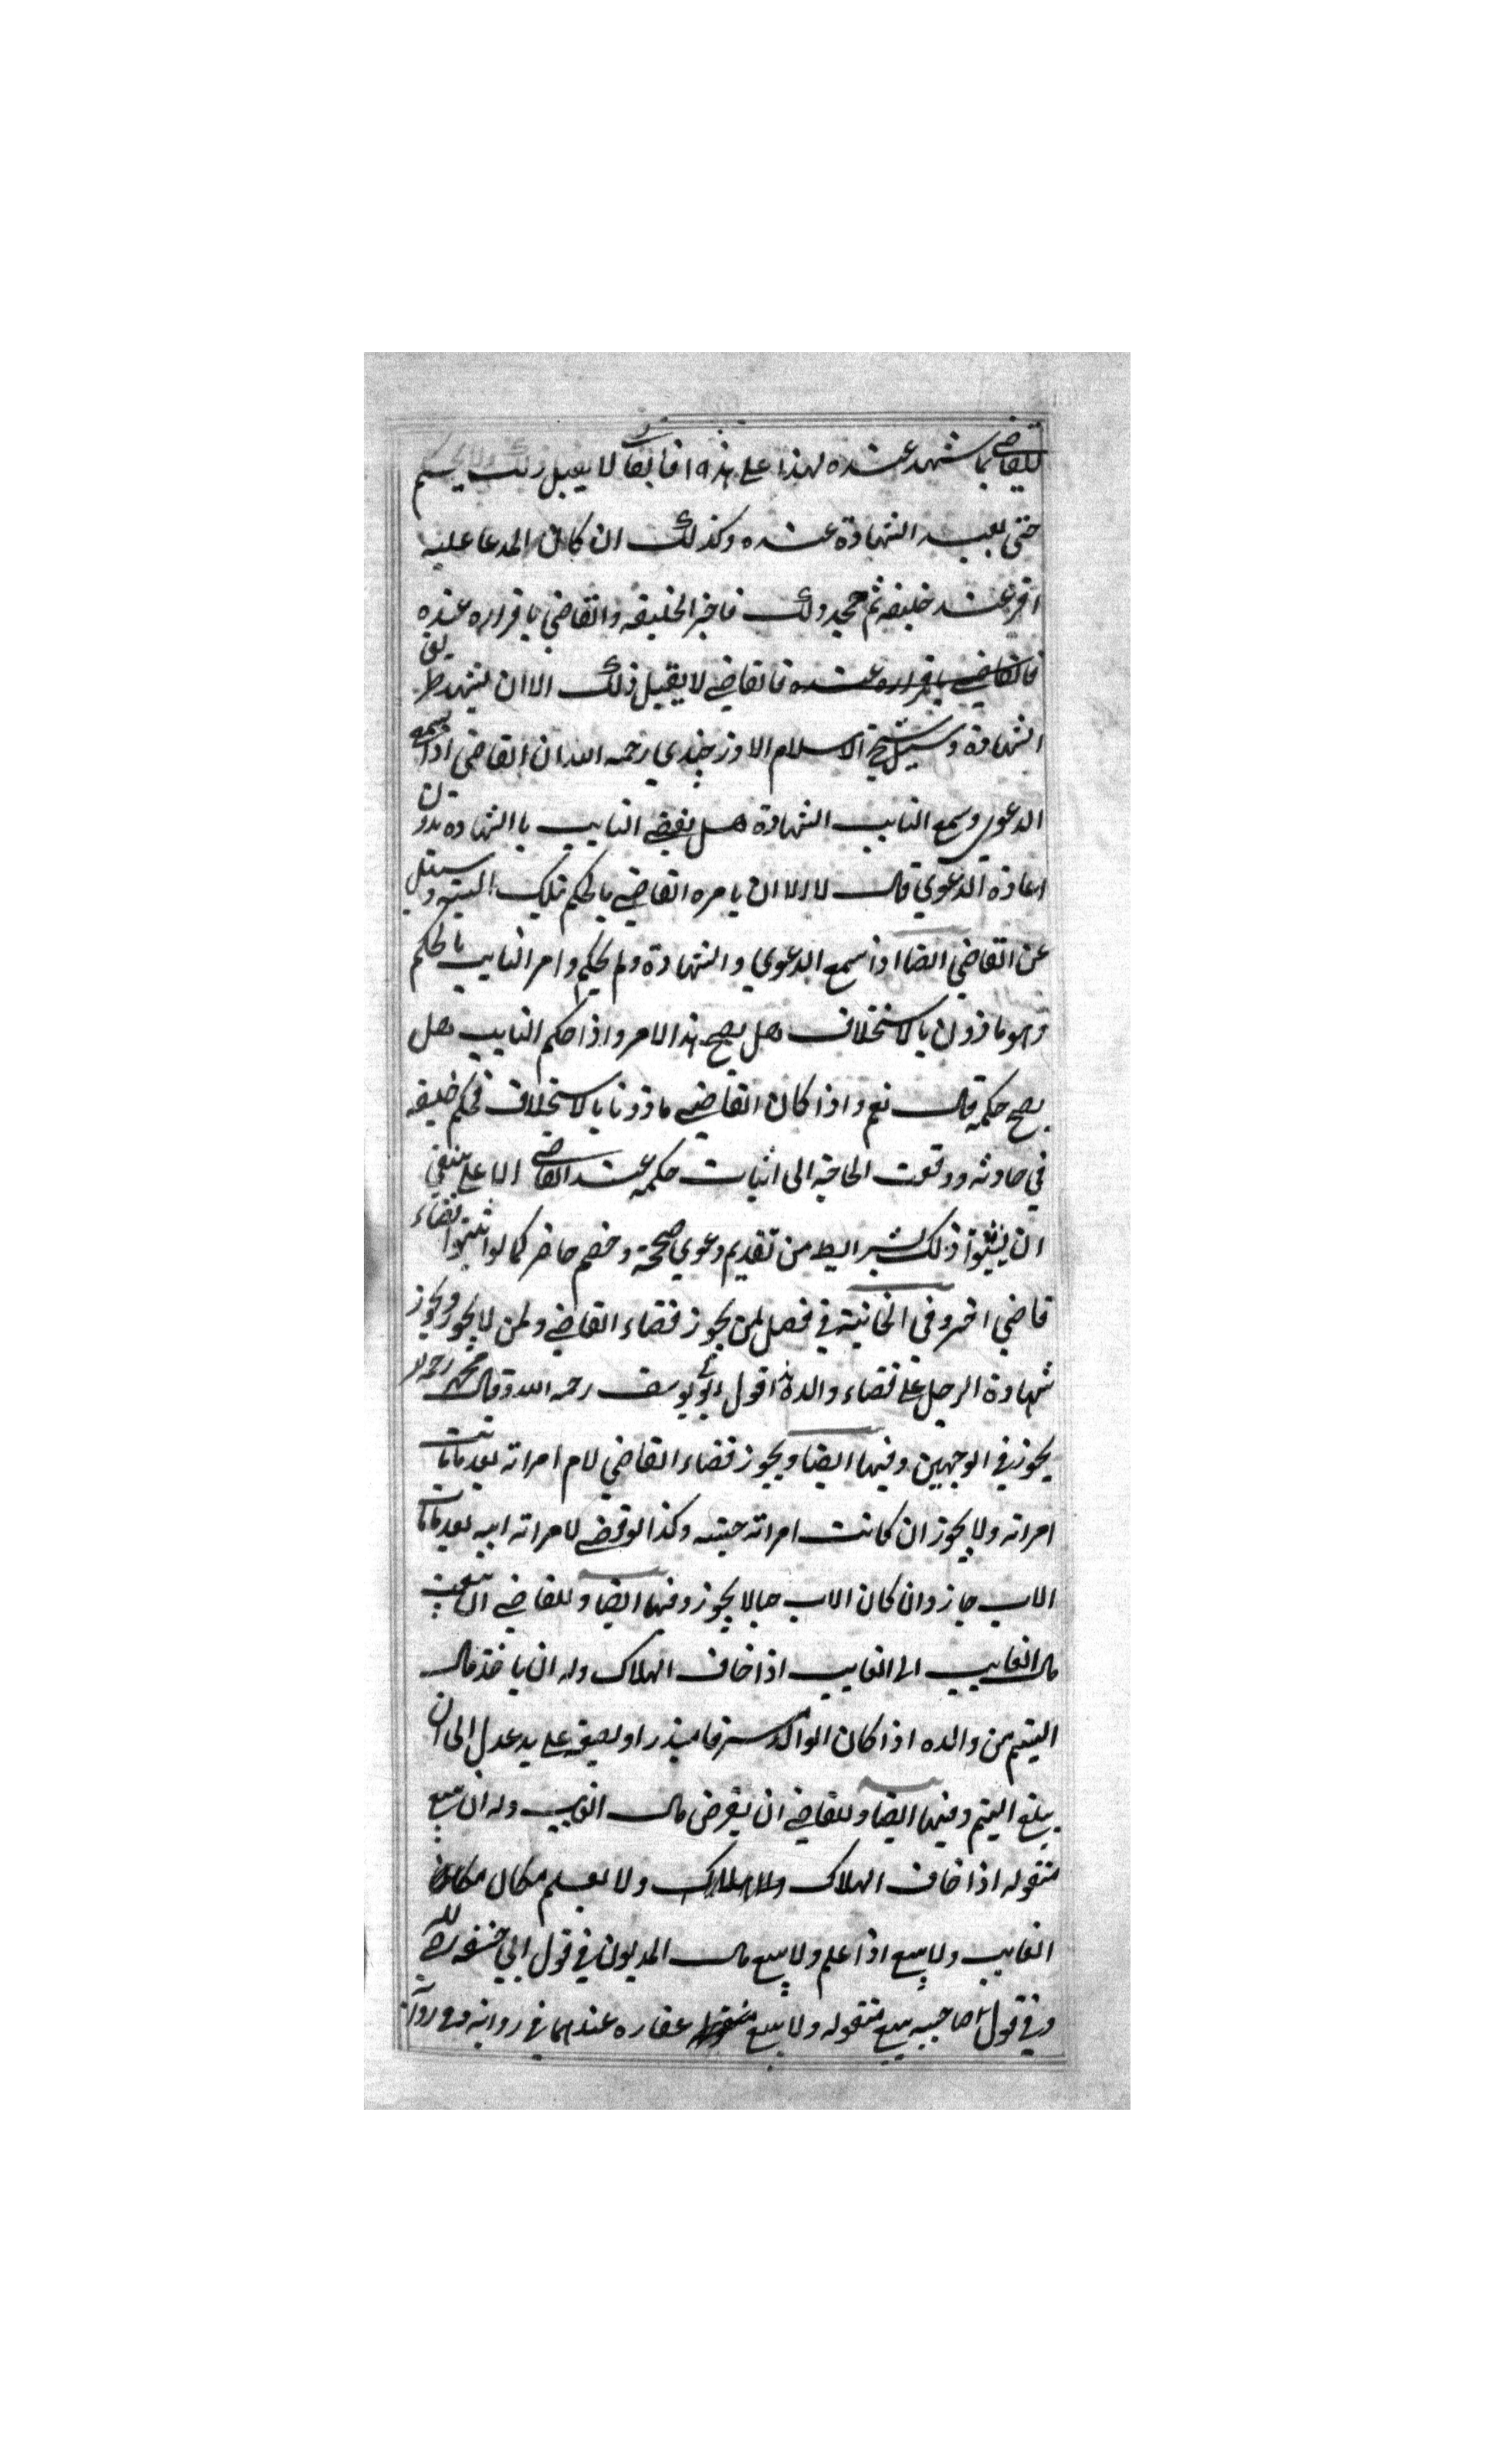 للقاضي بما شهد عنده لهذا على هذا فالقاضي لا يقبل ذلك ولا يحكم
حتى يعيد الشهادة عنده وكذلك ان كان المدعا عليه
اقر عند خليفه ثم جحد ذلك فاخبر الخليفه والقاضي باقراره عنده
فالقاضي باقراره عنده فالقاضي لا يقبل ذلك الا ان يشهد بطريق
الشهادة وسئل شيخ الاسلام الاوزجندي رحمه الله ان القاضي اذا سمع
الدعوى وسمع النايب الشهادة هل يقضي النايب باالشهادة بدون
اعادة الدعوي قال لا الا ان يامره القاضي بالحكم بتلك البينه وسئل
عن القاضي ايضا اذا سمع الدعوي والشهادة ولم يحكم وامر النايب بالحكم
وهو ماذون بالاستخلاف هل يصح هذا الامر واذا حكم النايب هل
يصح حكمه قال نعم واذا كان القاضي ماذونا بالاستخلاف فحكم خليفه
في حادثه ووقعت الحاجة الى اثبات حكمه عند القاضي الاعلى ينبغي
ان يثبتوا ذلك بشرايط من تقديم دعوي صحيحة وخصم حاضر كما لو اثبتوا قضاء
قاضي اخر وفي الخانية في فصل لمن يجوز قضاء القاضي ولمن لا يجوز ويجوز
شهادة الرجل على قضاء والده اقول ابو يوسف رحمه الله وقال محمد رحمه الله
يجوز في الوجهين وفيها ايضا ويجوز قضاء القاضي لام امراته بعد ما ماتت
امراته ولا يجوز ان كانت امراته حيته وكذا لو قضى لامراته ابيه بعد ما مات
الاب جاز وان كان الاب حيا لا يجوز وفيها ايضا وللقاضي ان يبعث
مال الغايب الى الغايب اذا خاف الهلاك وله ان ياخذ مال
اليتيم من والده اذا كان الوالد مسرفا مبذرا ويضعه على يد عدل الى ان
يبلغ اليتيم وفيها ايضا وللقاضي ان يقرض مال الغايب وله ان يبيع
منقوله اذا خاف الهلاك ولا يعلم مكان
الغايب ولا يبيع اذا علم ولا يبيع مال المديون في قول ابي حنيفه رحمه الله
وفي قول صاحبيه يبيع منقوله ولا يبيع عقاره عندهما في رواية وفي رواية